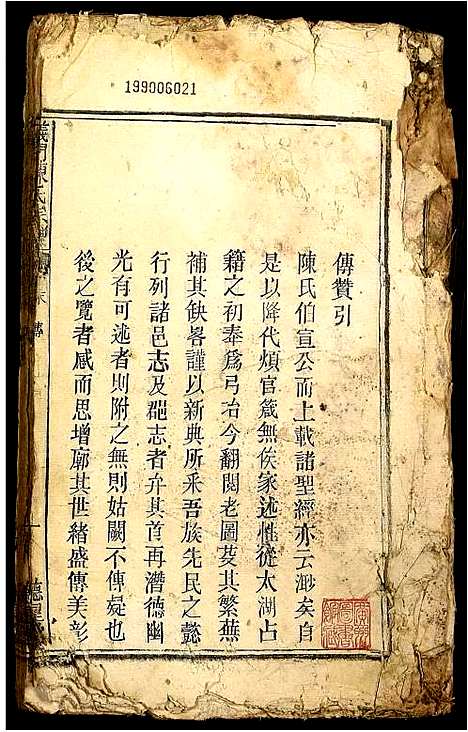 199006021
傳贊引
陳氏伯宣公而上載諸聖經亦云渺矣自
是以降代煩官箴無俟家述惟從太湖占
籍之初奉爲弓冶今翻閱老圖芟其繁蕪
補其缺畧謹以新典所釆吾族先民之懿
行列諸邑志及郡志者弁其首再潛德幽
光有可述者則附之無則姑闕不傳疑也
後之覽者感而思增廓其世緒盛傳美彰
義門陳氏宗譜
傳